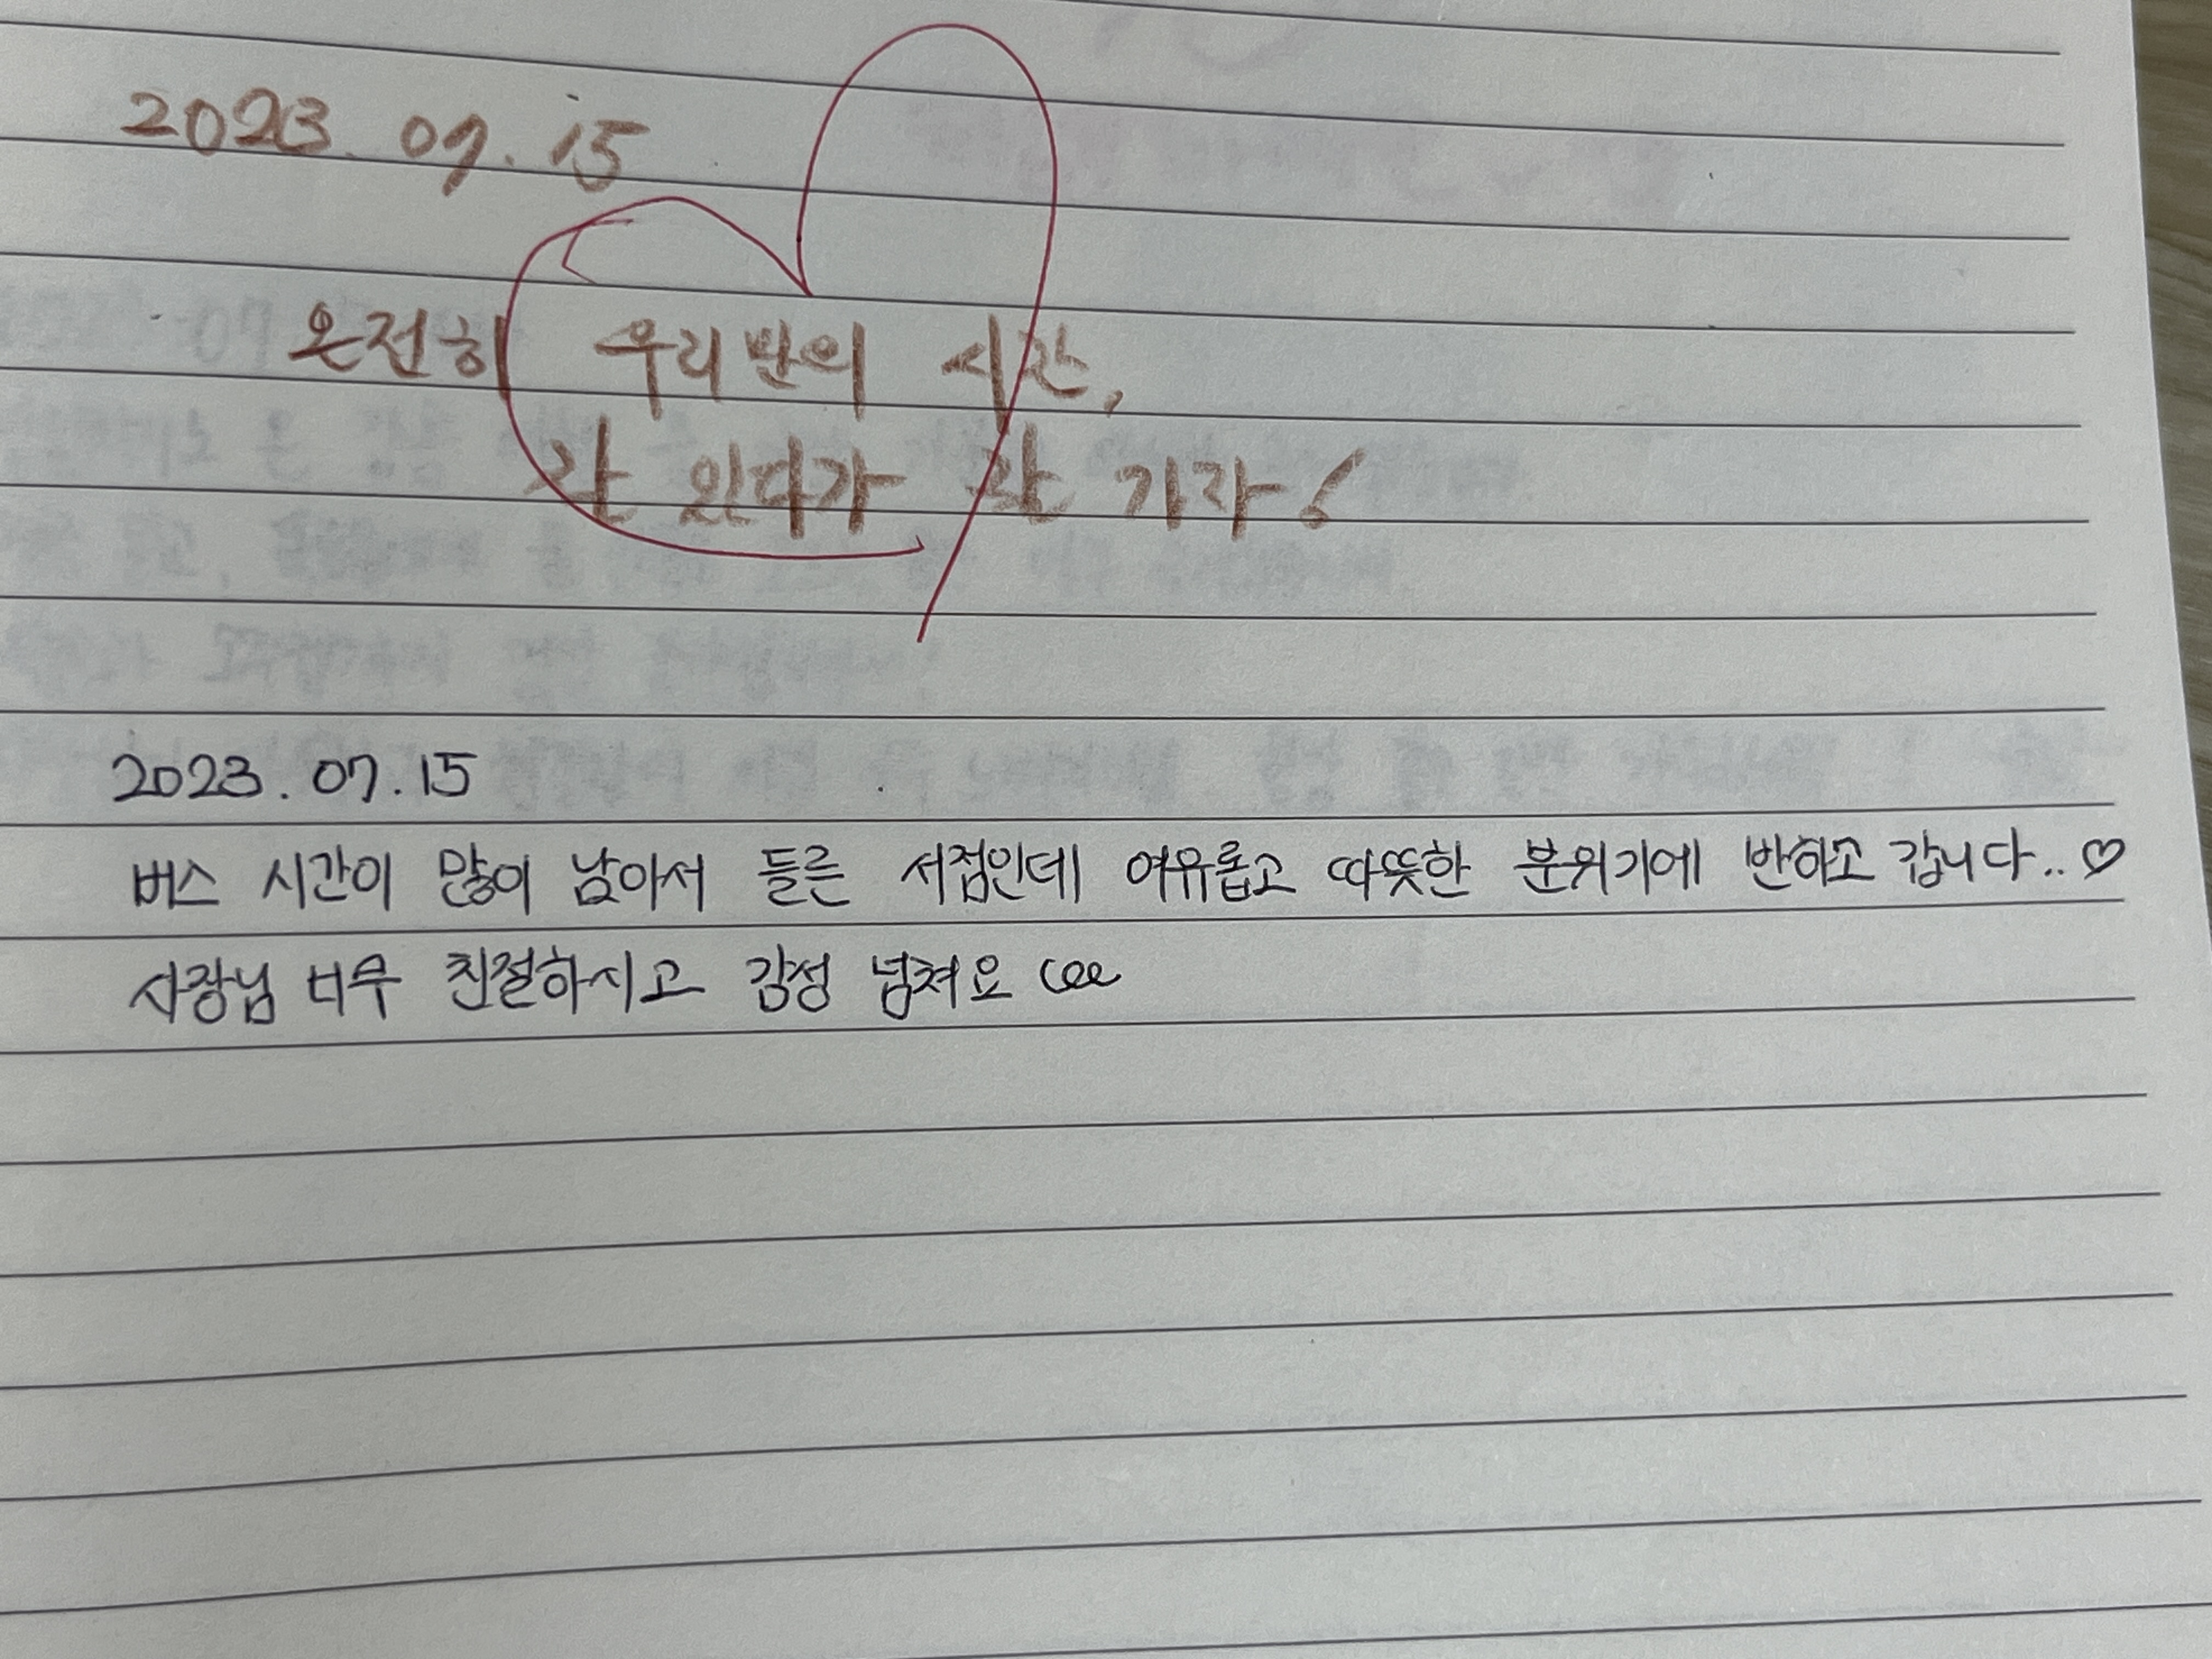 2023. 07. 15
온전히 우리만의 시간,
잘 있다가 잘 가자!
2023. 07. 15
버스 시간이 많이 남아서 들른 서점인데 여유롭고 따뜻한 분위기에 반하고 갑니다..♡
사장님 너무 친절하시고 감성 넘쳐요